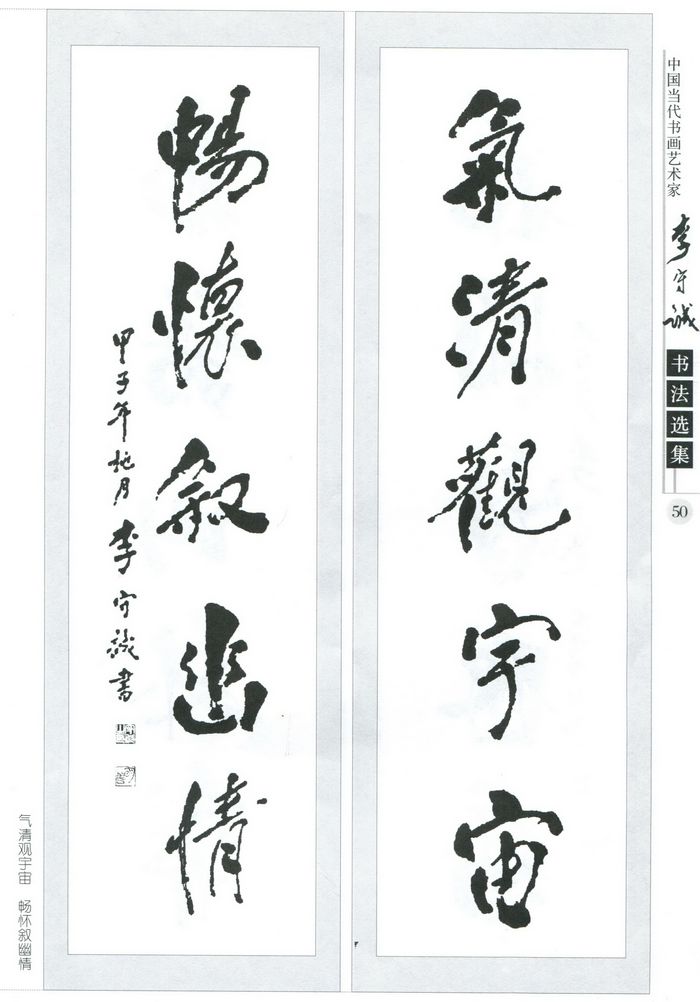 中国当代书画艺术家
李守诚
书法选集
50
氣清觀宇宙
暢懷叙幽情
甲子年 月李守诚書
气清观宇宙 畅怀叙幽情